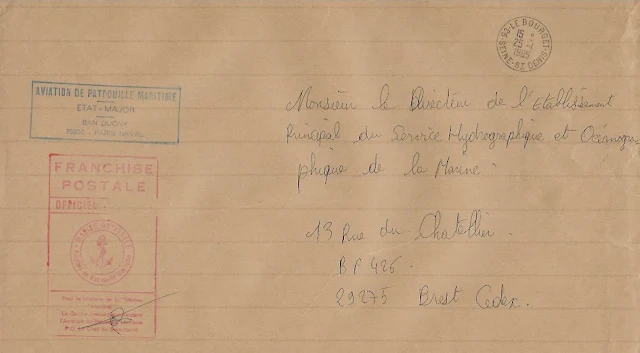 93 - LE BOURGET
SEINE - ST DENIS
1995
AVIATION DE PATROUILLE MARITIME
ETAT - MAJOR
BAN DUGNY
PARIS NAVAL
FRANCHISE
POSTALE
OFFICIEL
Monsieur le Directeur de l'Etablissement
Principal du Service Hydrographique et Océanogra
phique de la Marine.
13 Rue du Chatellier.
BP 426.
29275 Brest Cedex.